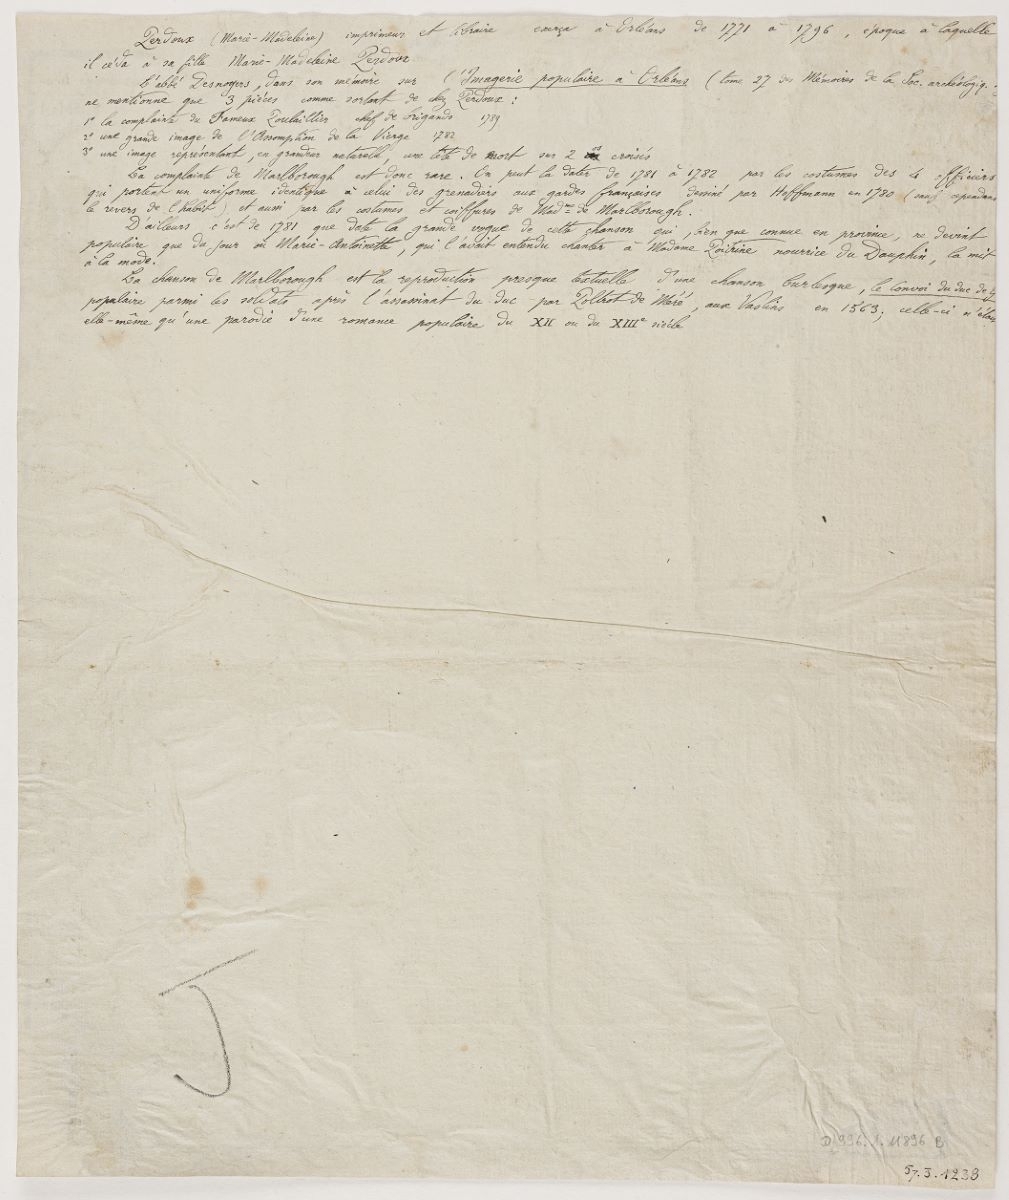 Perdoux (Marie-Madeleine) imprimeur et libraire exerça à Orléans de 1771 à 1796, époque à laquelle
il céda à sa fille Marie-Madeleine Perdoux
L'abbé Desnoyers, dans son mémoire sur l'Imagerie populaire à Orléans (tome 27 des Mémoires de la Soc. archéologiq.
ne mentionne que 3 pièces comme sortant de chez Perdoux :
1º la complainte du Fameux Poulaillier chef de brigands 1789
2º une grande image de l'Assomption de la Vierge 1782
3º une image représentant, en grandeur naturelle, une tête de mort sur 2 os croisés
La complainte de Marlborough est donc rare. On peut la dater de 1781 à 1782 par les costumes des 4 officiers
qui portent un uniforme identique à celui des grenadiers aux gardes françaises dessiné par Hoffmann en 1780 (sauf cependant
le revers de l'habit) et aussi par les costumes et coiffures de Mad.me de Marlborough.
D'ailleurs c'est de 1781 que date la grande vogue de cette chanson qui, bien que connue en province, ne devint
populaire que du jour où Marie-Antoinette, qui l'avait entendu chanter à Madame Poitrine nourrice du Dauphin, la mit
à la mode.
La chanson de Marlborough est la reproduction presque textuelle d'une chanson burlesque, le Convoi du duc de
populaire parmi les soldats après l'assassinat du duc par Poltrot de Méré, aux Vaslins en 1563; celle-ci n'était
elle-même qu'une parodie d'une romance populaire du XII ou du XIIIe siècle
J
D 996.1.11896 B
57.3.1238